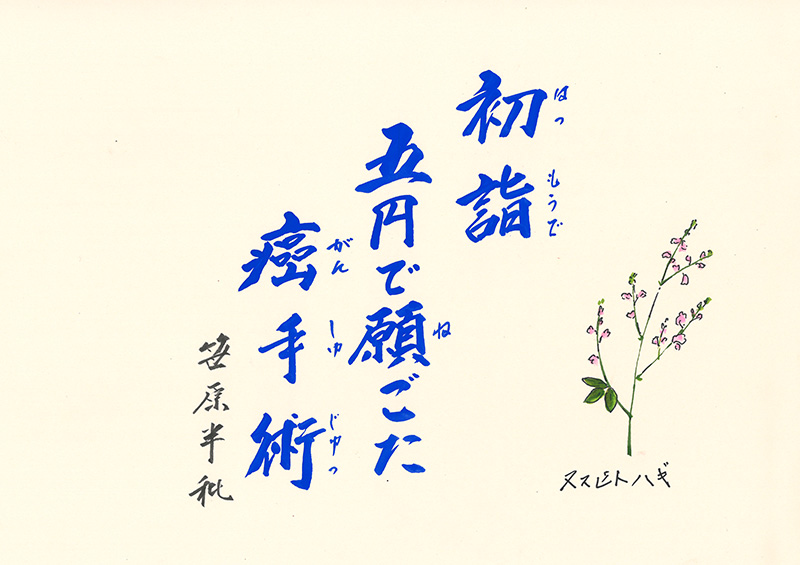 初詣
はつ もうで
五円で願ごた
ね
癌手術
がん しゅ じゅつ
笹原半𥝱
ヌスビトハギ